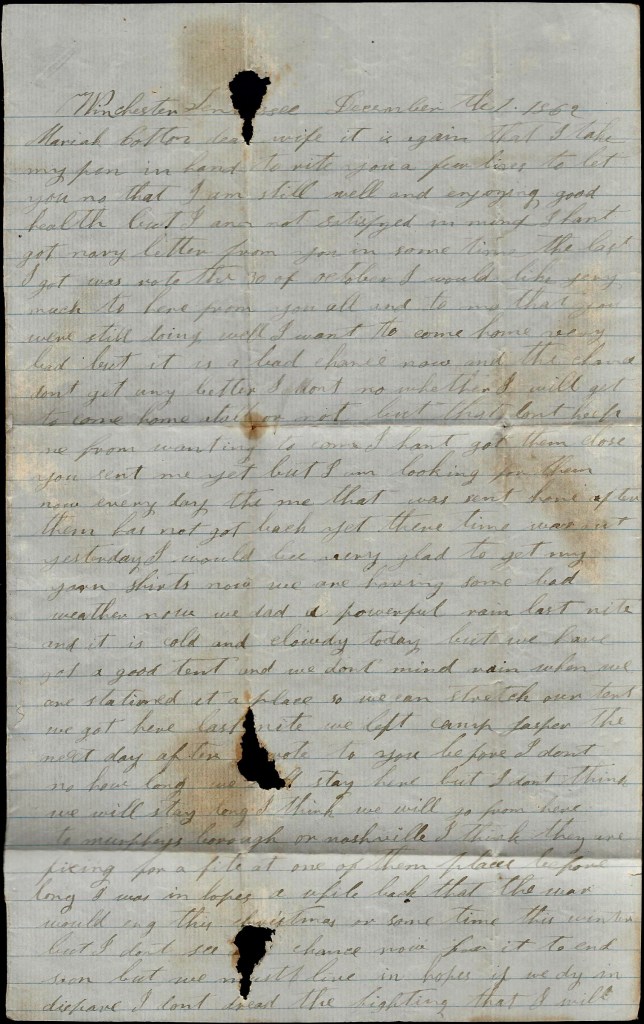 Winchester Tennessee December the 1. 1862
Mariah Cotton dear wife it is again that I take
my pen in hand to rite you a few lines to let
you no that I am still well and enjoying good
health but I am not satisfyed in ming I hant
got nary letter from you in some time the last
I got was rote the 30 of october I would like very
much to here from you all and to no that you
were still doing well I want to come home very
bad but it is a bad chance now and the chance
dont get any better I dont no whether I will get
to come home atall or not but that dont keep
me from wanting to come I hant got them close
you sent me yet but I am looking for them
now every day the me that was sent home after
them has not got back yet there time was out
yesterday I would bee very glad to get my
yarn shirts now we are having some bad
weather now we had a powerful rain last nite
and it is cold and clowdy today but we have
got a good tent and we dont mind rain when we
are stationed at a place so we can stretch our tent
we got here last nite we left camp Jasper the
next day after rote to you before I dont
no how long we stay here but I dont think
we will stay long I think we will go from here
to murpheys borough or nashville I think they are
fixing for a fite at one of them places before
long I was in hopes a while back that the war
would eng this christmas or some time this winter
but I dont see chance now for it to end
soon but we must live in hopes if we dy in
dispare I dont dread the fighting that I will